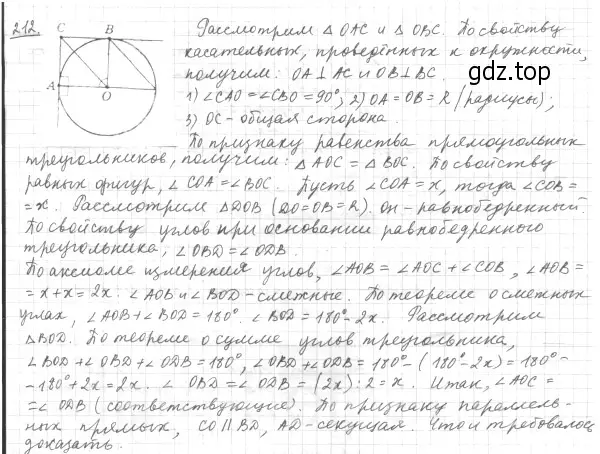 212.
C B
A O
Рассмотрим △ OAC и △ OBC. По свойству
касательных, проведённых к окружности,
получим: OA ⊥ AC и OB ⊥ BC.
gdz.top
1) ∠CAO = ∠CBO = 90°; 2) OA = OB = R (радиусы);
3) OC - общая сторона.
По признаку равенства прямоугольных
треугольников, получим: △ AOC = △ BOC. По свойству
равных фигур, ∠ COA = ∠ BOC. Пусть ∠ COA = x, тогда ∠ COB =
= x. Рассмотрим △DOB (DO = OB = R). Он - равнобедренный.
По свойству углов при основании равнобедренного
треугольника, ∠ OBD = ∠ ODB.
По аксиоме измерения углов, ∠ AOB = ∠ AOC + ∠ COB, ∠ AOB =
= x + x = 2x. ∠ AOB и ∠ BOD - смежные. По теореме о смежных
углах, ∠ AOB + ∠ BOD = 180°. ∠ BOD = 180° - 2x. Рассмотрим
△ BOD. По теореме о сумме углов треугольника,
∠ BOD + ∠ OBD + ∠ ODB = 180°, ∠ OBD + ∠ ODB = 180° - (180° - 2x) = 180° -
- 180° + 2x = 2x. ∠ OBD = ∠ ODB = (2x) : 2 = x. Итак, ∠ AOC =
= ∠ ODB (соответствующие). По признаку параллель-
ных прямых, CO ∥ BD, AD - секущая. Что и требовалось
доказать.